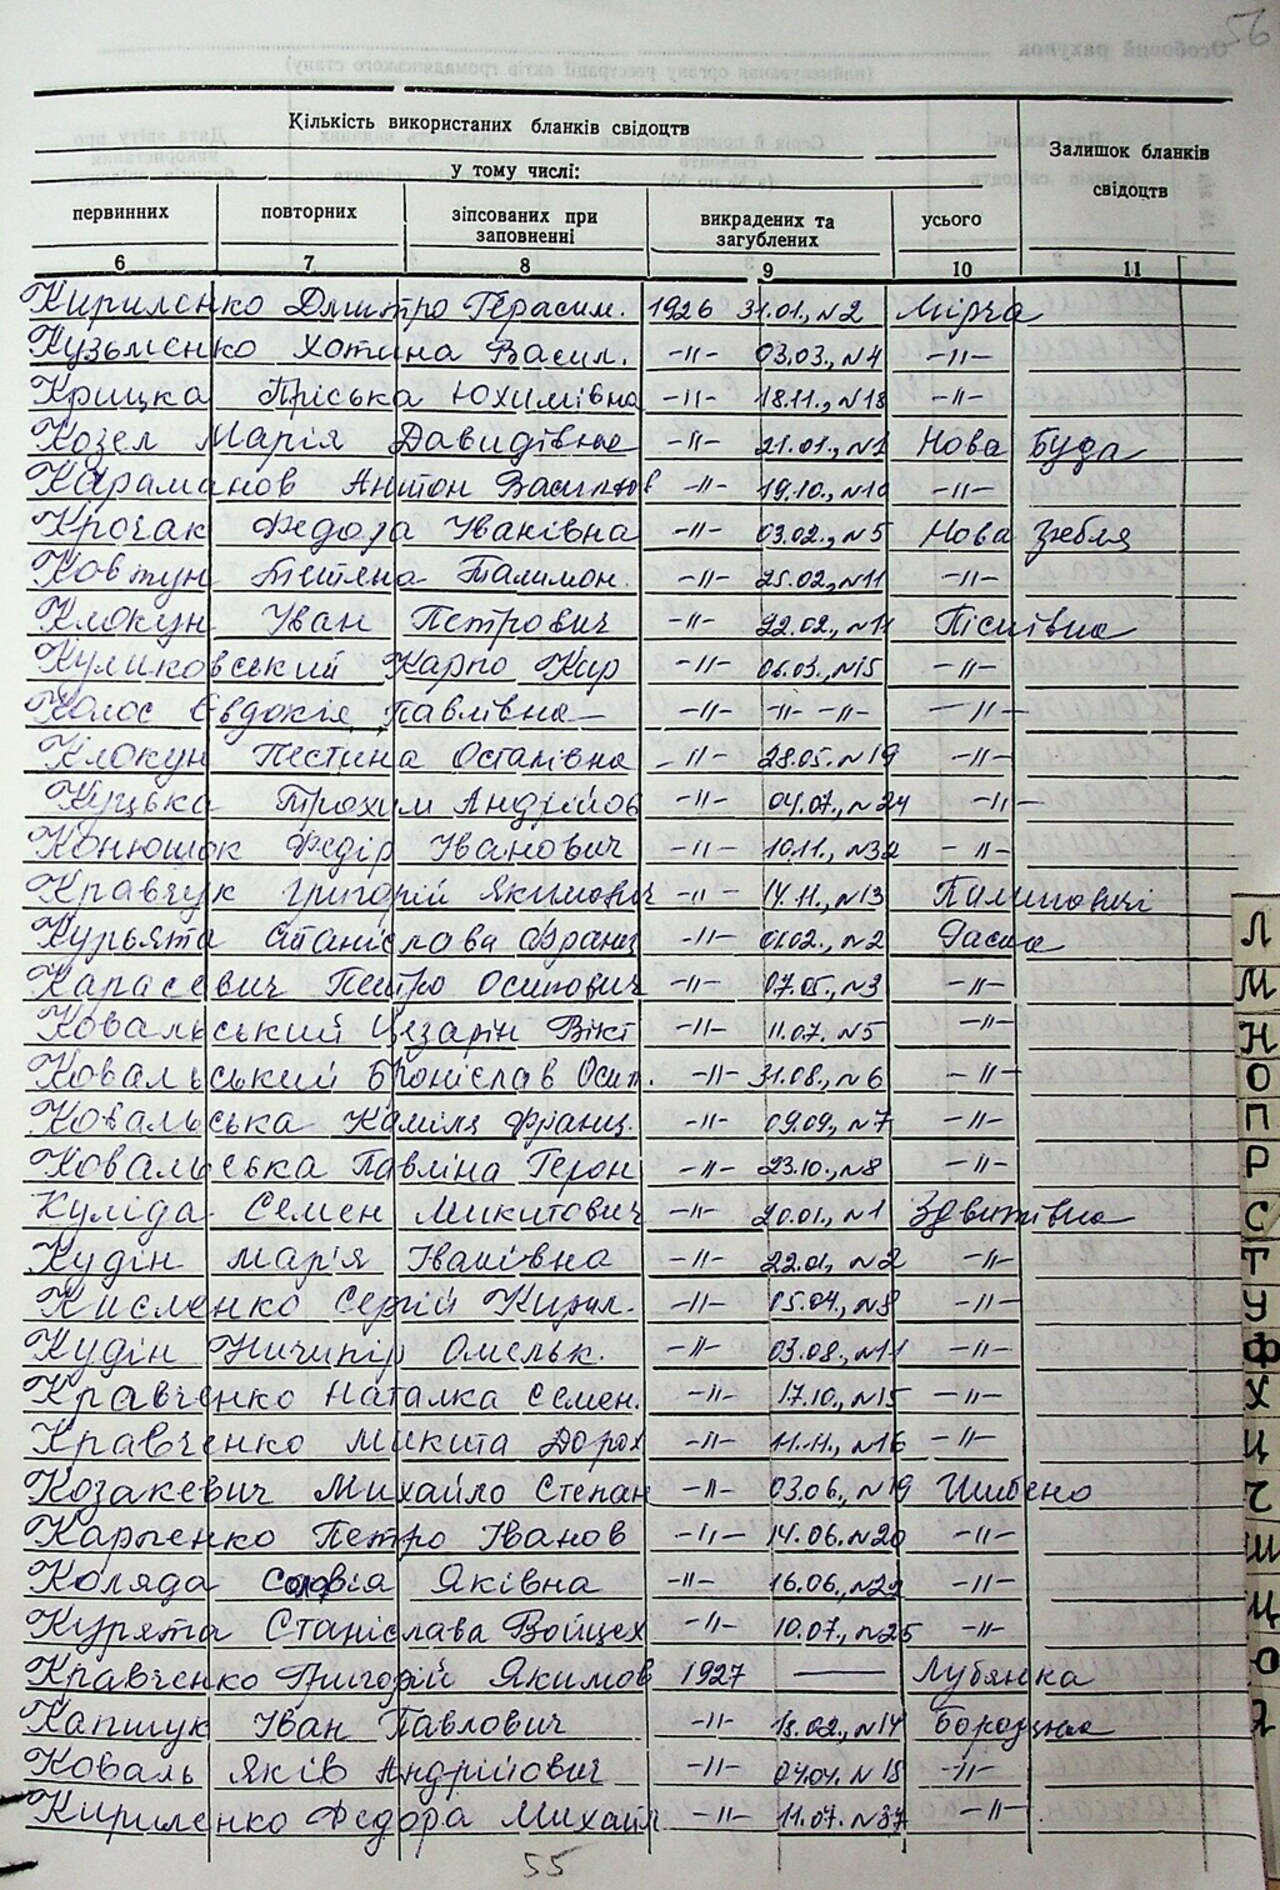 56
Кількість використаних бланків свідоцтв
Залишок бланків свідоцтв
у тому числі:
первинних повторних зіпсованих при заповненні викрадених та загублених усього
6 7 8 9 10 11
Кириленко Дмитро Герасим. 1926 31.01., N2 Мірча
Кузьменко Хотина Васил. -"- 03.03., N4 -"-
Крицка Пріська Юхимівна -"- 18.11., N18 -"-
Козел Марія Давидівна -"- 21.01., N1 Нова Буда
Караманов Антон Васильов -"- 19.10., N10 -"-
Крочак Федора Іванівна -"- 03.02., N5 Нова Гребля
Ковтун Тетяна Талимон. -"- 25.02., N11 -"-
Клокун Іван Петрович -"- 22.02., N11 Пісківка
Куликовський Карпо Кир -"- 06.03., N15 -"-
Колос Євдокія Павлівна -"- -"- -"- -"-
Клокун Пестина Остапівна -"- 28.05. N19 -"-
Куцька Трохим Андрійов -"- 04.07., N24 -"-
Конюшок Федір Іванович -"- 10.11., N32 -"-
Кравчук Григорій Якимович -"- 14.11., N13
Курьята Станіслава Франц -"- 01.02., N2
Карасевич Петро Осипович -"- 07.05., N3 -"-
Ковальський Цезарін Вікт -"- 11.07. N5 -"-
Ковальський Броніслав Осип. -"- 31.08., N6 -"-
Ковальська Каміля Франц. -"- 09.09., N7 -"-
Ковальська Павліна Герон -"- 23.10., N8 -"-
Куліда Семен Микитович -"- 20.01., N1 Здвижівка
Кудін Мар'я Іванівна -"- 22.01, N2 -"-
Кисленко Сергій Кирил. -"- 15.04., N8 -"-
Кудін Ничипір Омельк. -"- 03.08., N11 -"-
Кравченко Наталка Семен. -"- 17.10., N15 -"-
Кравченко Микита Дорох -"- 11.11., N16 -"-
Козакевич Михайло Степан -"- 03.06., N19 Шибено
Карпенко Петро Іванов -"- 14.06. N20 -"-
Коляда Яківна -"- 16.06., N22 -"-
Курята Станіслава Войцех -"- 10.07., N25 -"-
Кравченко Григорій Якимов 1927 — Лубянка
Капшук Іван Павлович -"- 18.02., N14 Бородянка
Коваль Яків Андрійович -"- 04.04. N18 -"-
Кириленко Федора Михайл -"- 11.07. N37 -"-
55
Л
М
Н
О
П
Р
С
Т
У
Ф
Х
Ц
Ч
Ш
Щ
Ю
Я